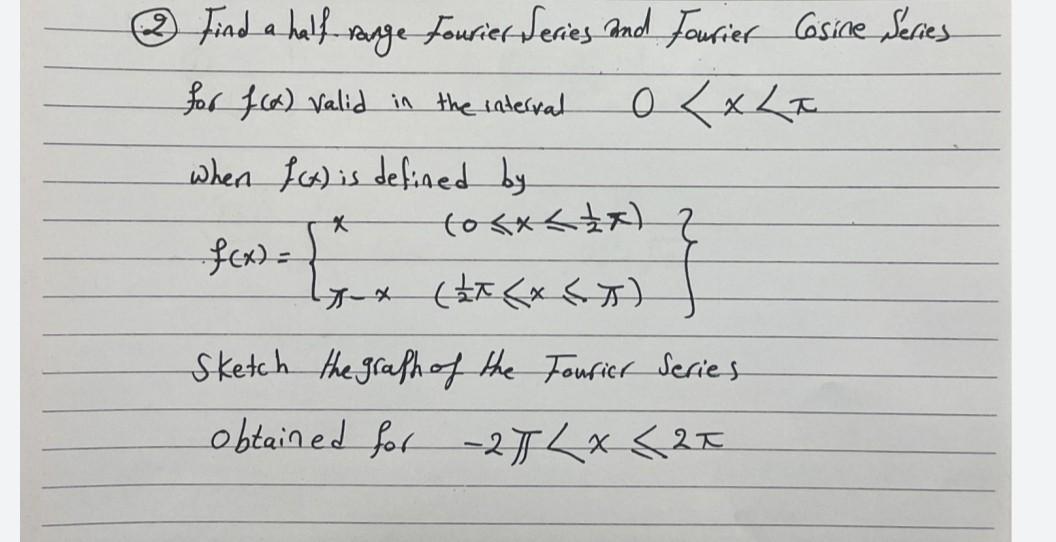 ② Find a half-range Fourier Series and Fourier Cosine Series
for f(x) valid in the interval 0 < x < π
when f(x) is defined by
f(x) = { x (0 ≤ x ≤ ½π)
π - x (½π ≤ x ≤ π) }
Sketch the graph of the Fourier Series
obtained for -2π < x ≤ 2π